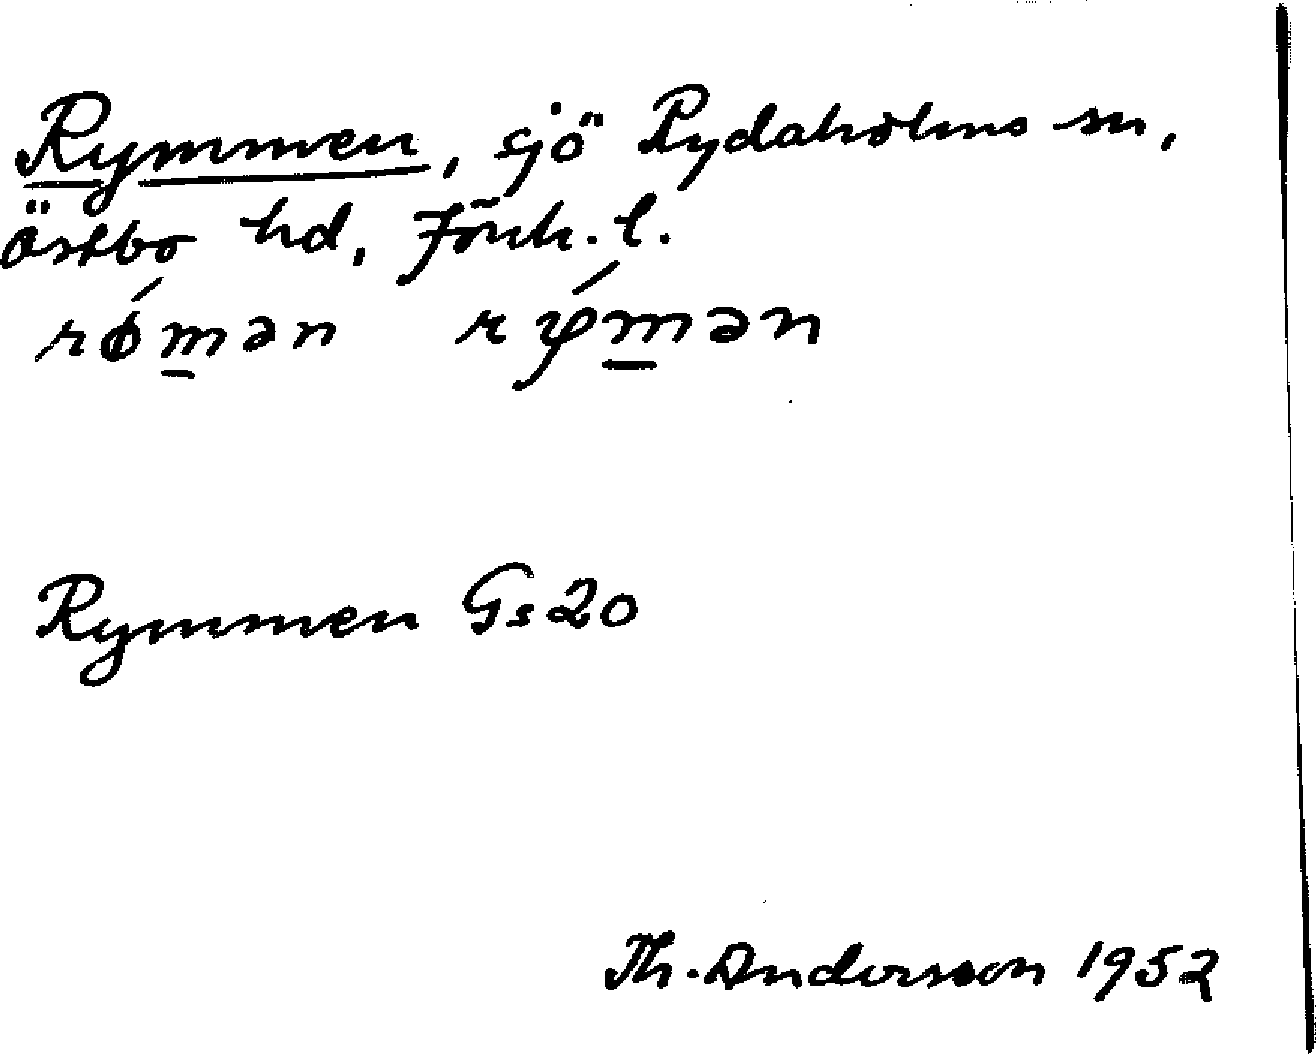 Rymmen, sjö Rydaholms sn,
Östbo hd, Jönk. l.
rǿm̲ən rým̲ən
Rymmen Gs 20
Th. Andersson 1952